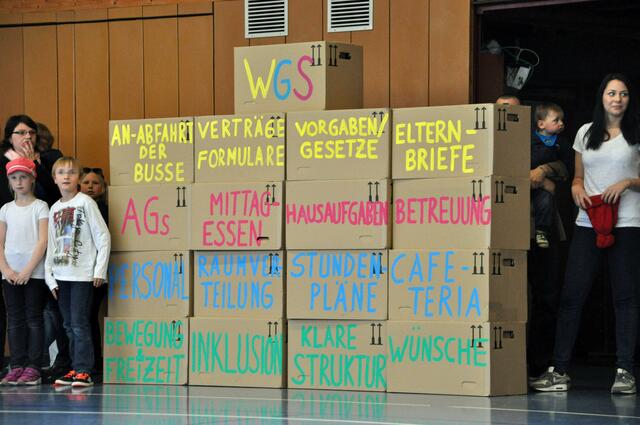 WGS
AN-ABFAHRT
DER
BUSSE
VERTRÄGE
FORMULARE
VORGABEN/
GESETZE
ELTERN-
BRIEFE
AGs
MITTAG-
ESSEN
HAUSAUFGABEN
BETREUUNG
PERSONAL
RAUMVER-
TEILUNG
STUNDEN-
PLÄNE
CAFE-
TERIA
BEWEGUNG
+
FREIZEIT
INKLUSION
KLARE
STRUKTUR
WÜNSCHE